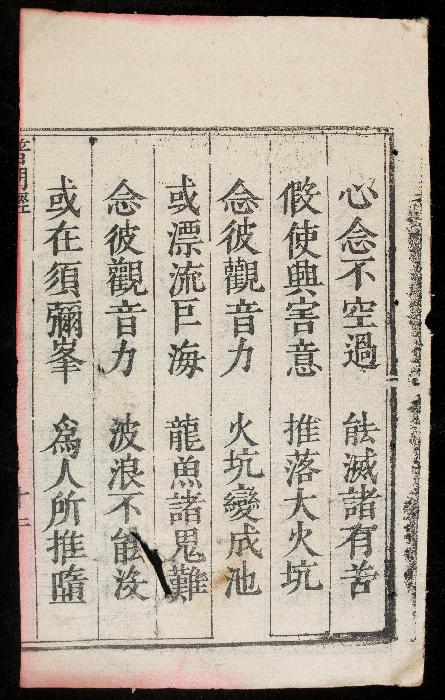 心念不空過 能滅諸有苦
假使興害意 推落大火坑
念彼觀音力 火坑變成池
或漂流巨海 龍魚諸鬼難
念彼觀音力 波浪不能沒
或在須彌峯 為人所推墮
普門經
十二